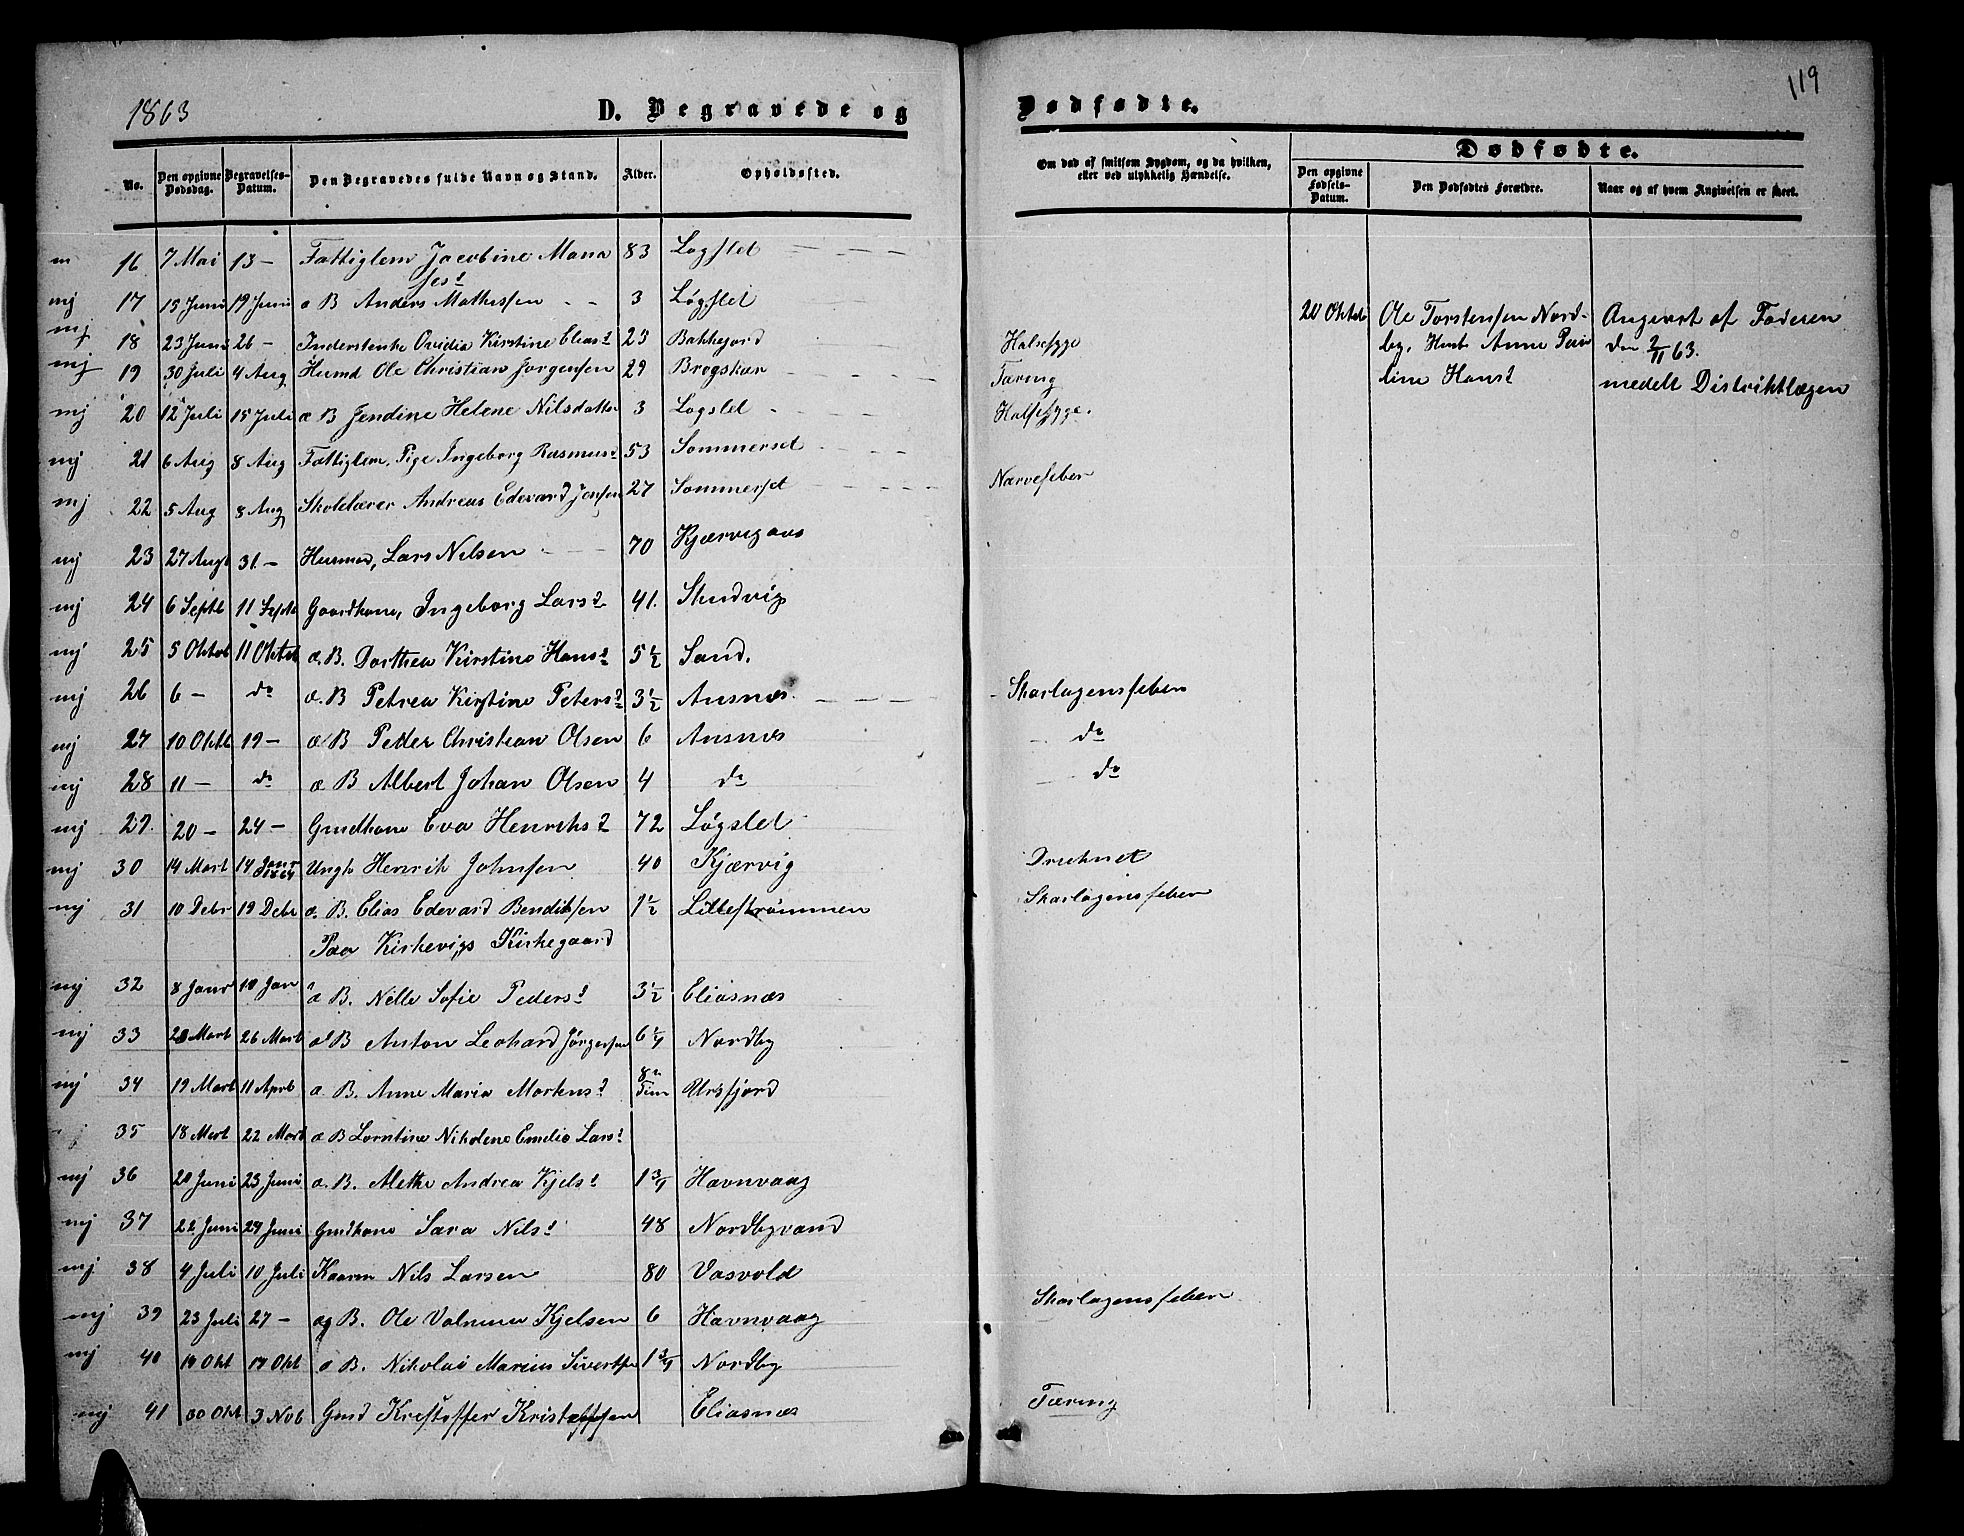 1863
D. Begravede og
Dødfødte.
119
No.
Den opgivne Dødsdag.
Begravelses-Datum.
Den Begravedes fulde Navn og Stand.
Alder.
Opholdssted.
Om død af smitsom Sygdom, og da hvilken, eller ved ulykkelig Hændelse.
Dødfødte.
Den opgivne Fødsels-Datum.
Den Dødfødtes Forældre.
Naar og af hvem Angivelsen er skeet.
m 16 7 Mai 13 – Fattiglem Jacobine Mana 83 Løgslet
ses d
mj 17 15 Juni 19 Juni æ B Anders Mathissen 3 Løgslet
20 Oktob Ole Torstensen Nord- Angivet af Faderen
mj 18 23 Juni 26 – Inderstenke Ovidia Kirstine Elias d 23 Bakkejord Halssyge
by, Hust Anne Pau den 2/11 63.
mj 19 30 Juli 4 Aug Husmd Ole Christian Jørgensen 29 Brøgskar Tæring
line Hans d meddelt Distriktlægen
mj 20 12 Juli 15 Juli æ B Jendine Helene Nilsdatter 3 Løgslet Halssyge.
mj 21 6 Aug 8 Aug Fattiglem, Pige Ingeborg Rasmus d 53 Sommerset
mj 22 5 Aug 8 Aug Skolelærer Andreas Edevard Jonsen 27 Sommerset Nærvefeber
mj 23 27 Augt 31 – Husmd, Lars Nilsen 70 Kjærvig
mj 24 6 Septb 11 Septb Gaardkone, Ingeborg Lars d 41. Skudvig
mj 25 5 Oktob 11 Oktob æ. B. Dorthea Kirstine Hans d 5 1/2 Sand.
mj 26 6 – do æ. B Petrea Kirstine Peters d 3 1/2 Ansnæs. Skarlagensfeber
mj 27 10 Oktb 19 – æ B Petter Christian Olsen 6 Ansnæs do
mj 28 11 – do æ B Albert Johan Olsen 4 do do
mj 29. 20 – 24 – Gmdkone Eva Henriks d 72 Løgslet
mj 30 14 Mart 14 Janr 1864 Ungk Henrik Johnsen 40 Kjærvig Druknet
mj 31 10 Debr 19 Debr æ. B. Elias Edevard Bendiksen 1 1/2 Lillestrømmen Skarlagensfeber
Paa Kirkevigs Kirkegaard
mj 32 8 Janr 10 Jan æ B. Nille Sofie Peders d 3 1/2 Eliasnæs
mj 33 20 Mart 26 Mart æ B Anton Leohard Jørgensen 6 1/4 Nordby
mj 34 19 Mart 11 Aprb æ B. Anne Maria Mortens d 8 Tim Ursfjord
35 18 Mart 22 Mart æ B Lorntine Nikoline Emelie Lars d
mj 36 20 Juni 23 Juni æ. B. Methe Andrea Kjels d 1 3/4 Havnvaag
mj 37 22 Juni 24 Juni Gmdkone Sara Nils d 48 Nordbyvand
mj 38 4 Juli 10 Juli Kaarm Nils Larsen 80 Vasvold
mj 39 23 Juli 27 – æg B. Ole Volmer Kjelsen 6 Havnvaag Skarlagensfeber
mj 40 14 Okt 17 Okt æ B. Nikolai Marius Sivertsen 1 3/4 Nordby
mj 41 30 Okt 3 Nob Gmd Krestoffer Kristoffersen Eliasnæs Tæring